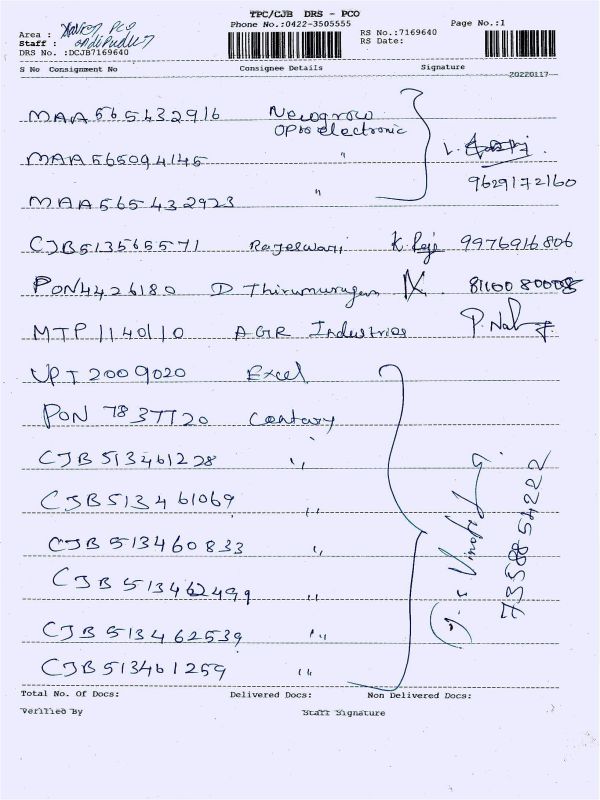 TPC/CJB DRS - PCO
Phone No.:0422-3505555
Page No.:1
Area : PCO
Staff :
DRS No. :DCJB7169640
RS No.:7169640
RS Date:
S No Consignment No Consignee Details Signature
20220117
MAA 565432916 Newgrow
Opto electronic
MAA 565094145 "
MAA 565 432923 "
9629172160
CJB513565571 Rajeswari K. Raji 9976916806
PON4426180 D Thirumurugan 8110080008
MTP 1140110 AGR Industries P.
UPT 2009020 Excel
PON 7837720 Century
CJB 513461228 "
CJB 513461069 "
CJB 513460833 "
CJB 513462499 "
CJB 513462539 "
CJB 513461259 "
7358854222
Total No. Of Docs: Delivered Docs: Non Delivered Docs:
Verified By Staff Signature